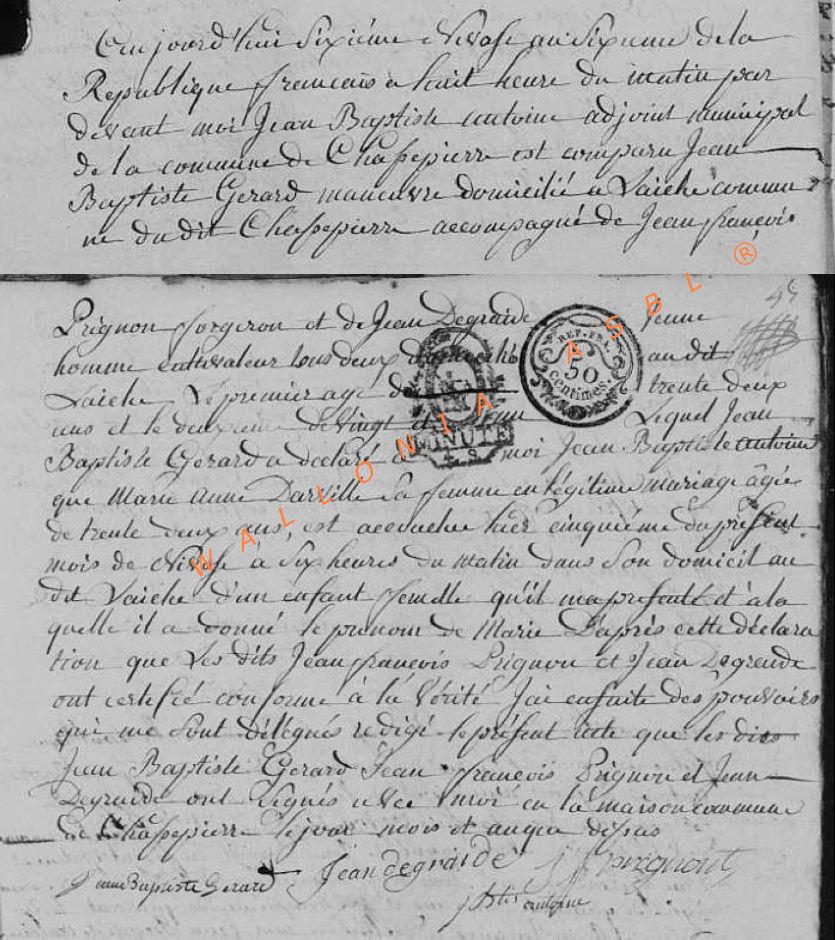 Cejourd'hui Sixième Nivose an Sixieme de la
Republique francais a huit heure du matin par
devant moi Jean Baptiste antoine adjoint municipal
de la commune de Chassepierre est comparu Jean
Baptiste Gerard maneuvre domicilié a Laiche commu
ne du dit Chassepierre accompagné de Jean françois
Prignon forgeron et de Jean Degraide jeune
homme cultivateur tous deux au dit
Laiche Le premier age de trente deux
ans et le deuxieme de vingt et Lequel Jean
Baptiste Gerard a déclaré a moi Jean Baptiste antoine
que Marie Anne Darville Sa femme en légitime mariage âgée
de trente deux ans, est accouchée hier cinquième du présent
mois de Nivose a Six heures du Matin dans Son domicil au
dit Laiche d'un enfant femelle qu'il ma présenté et a la
quelle il a donné le prenom de Marie D'après cette déclara
tion que Les dits Jean françois Prignon et Jean Degraide
ont certifié conforme à la Vérité J'ai ensuite des pouvoirs
qui me Sont délégués redigé le présent acte que les dits
Jean Baptiste Gerard Jean françois Prignon et Jean
Degraide ont Signés avec moi en la maison commune
de Chassepierre le jour mois et an que dessus
Jean Baptiste Gerard Jean degraide J f prignont
j Bte antoine
REP. FRA.
50
centimes.
MINUTE
WALLONIA ASBL ®